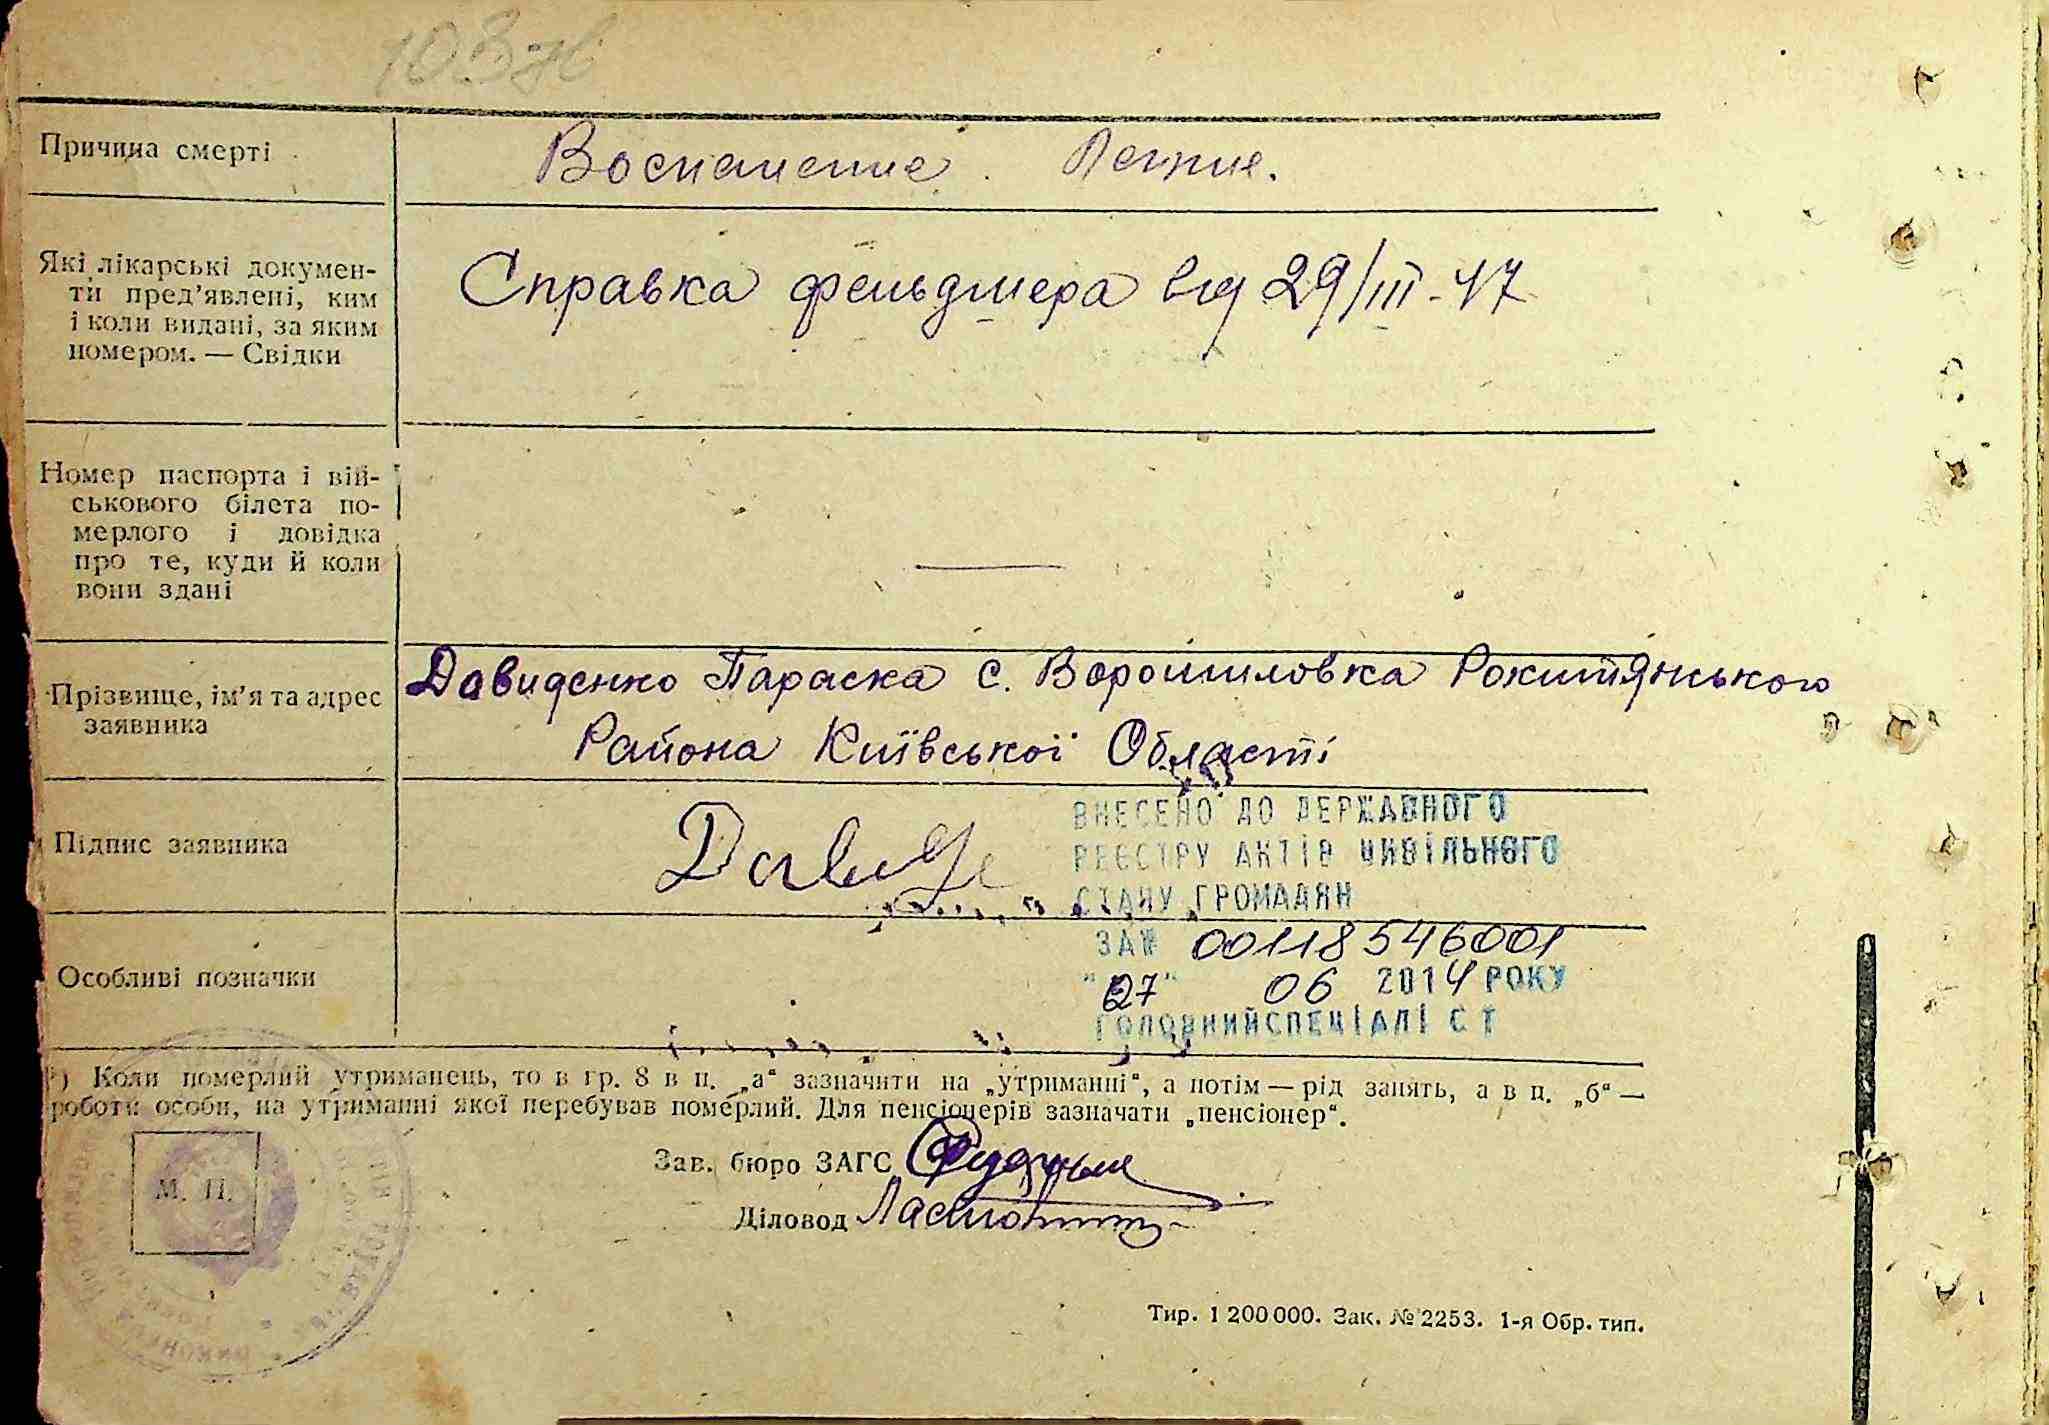 Причина смерті
Воспаление Легких.
Які лікарські докумен-
ти пред’явлені, ким
і коли видані, за яким
номером. — Свідки
Справка фельдшера від 29/III-47
Номер паспорта і вій-
ськового білета по-
мерлого і довідка
про те, куди й коли
вони здані
—
Прізвище, ім’я та адрес
заявника
Давиденко Параска с. Ворошиловка Рокитянського
Района Київської Області
Підпис заявника
Давиде
ВНЕСЕНО ДО ДЕРЖАВНОГО
РЕЄСТРУ АКТІВ ЦИВІЛЬНОГО
СТАНУ ГРОМАДЯН
ЗА № 00118546001
"27" 06 2014 РОКУ
ГОЛОВНИЙ СПЕЦІАЛІСТ
Особливі позначки
*) Коли померлий утриманець, то в гр. 8 в п. „а“ зазначити на „утриманні“, а потім — рід занять, а в п. „б“ —
роботи особи, на утриманні якої перебував померлий. Для пенсіонерів зазначати „пенсіонер“.
Зав. бюро ЗАГС
Діловод
М. П.
Тир. 1 200 000. Зак. № 2253. 1-я Обр. тип.